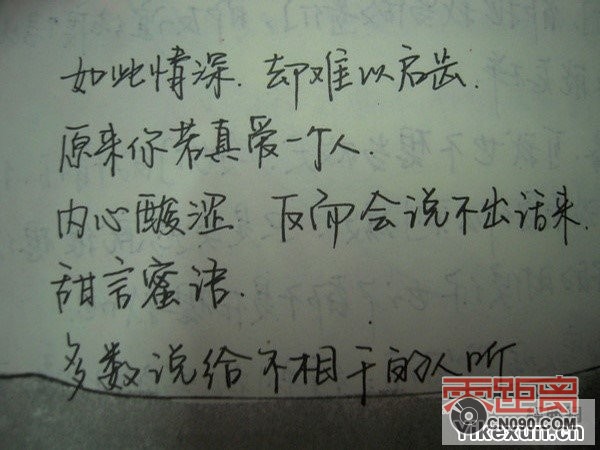 如此情深.却难以启齿.
原来你若真爱一个人.
内心酸涩 反而会说不出话来.
甜言蜜语.
多数说给不相干的人听
零距离
CN090.COM
Yikexun.cn